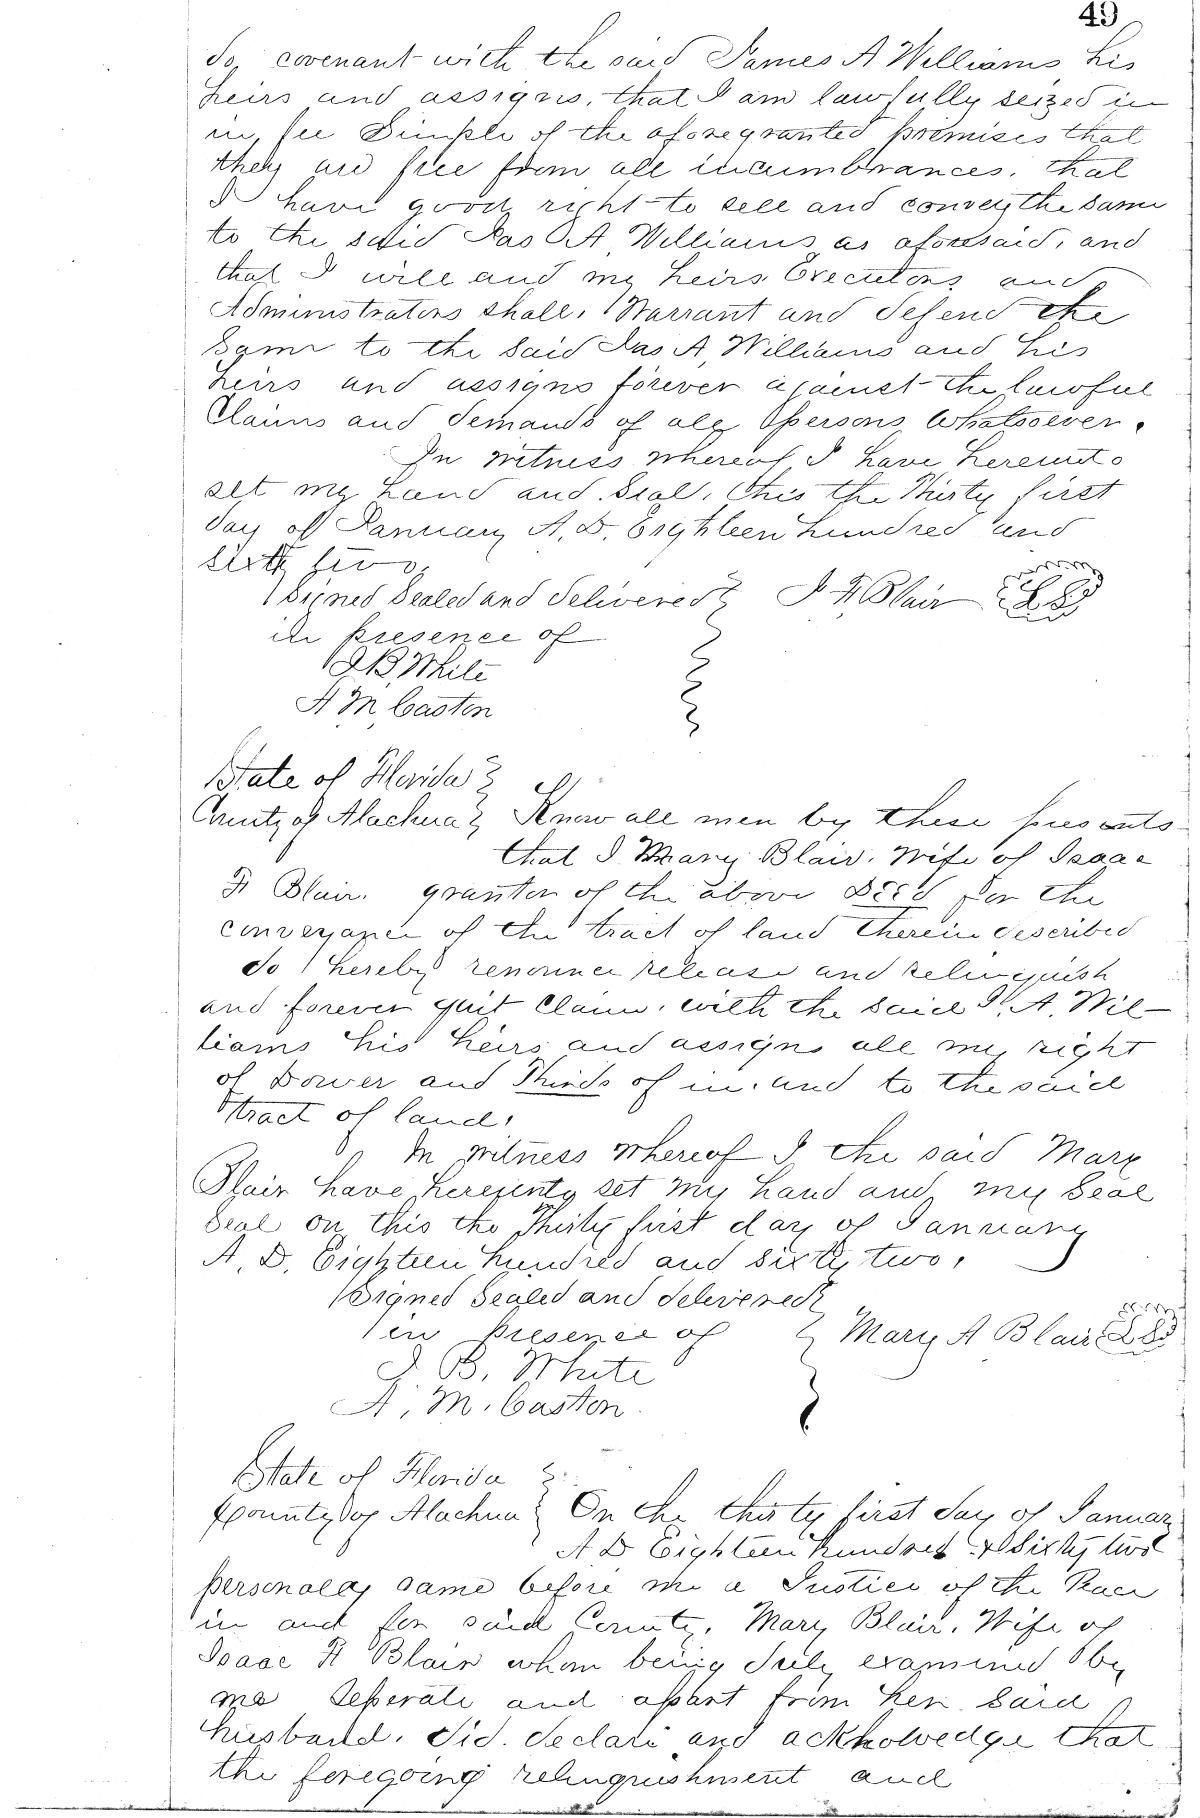 49
do, covenant with the said James A Williams his
heirs and assigns, that I am lawfully seized in
in, fee Simple of the aforegranted premises that
they are free from all incumbrances, that
I have good right to sell and convey the same
to the said Jas A Williams as aforesaid, and
that I will and my heirs Executors and
Administrators shall, Warrant and defend the
Same to the Said Jas A, Williams and his
heirs and assigns forever against the lawful
Claims and demands of all persons Whatsoever.
In witness whereof I have hereunto
set my hand and Seal, this the Thirty first
day of January A, D. Eighteen hundred and
sixty two,
Signed Sealed and delivered I F Blair LS
in presence of
J B, White
A M, Caston
State of Florida
County of Alachua Know all men by these presents
that I Mary Blair, Wife of Isaac
F Blair, grantor of the above Deed for the
conveyance of the tract of land therein described
do hereby renounce release and relinquish
and forever quit Claim, with the said J, A, Wil-
liams his heirs and assigns all my right
of Dower and Thirds of in, and to the said
tract of land,
In witness whereof I the said Mary
Blair have hereunto set my hand and my Seal
Seal on this the Thirty first day of January
A, D, Eighteen hundred and sixty two,
Signed Sealed and delivered
in presence of Mary A Blair LS
J B, White
A, M, Caston
State of Florida
County of Alachua On the thirty first day of January
A D Eighteen hundred & Sixty two
personaly came before me a Justice of the Peace
in and for said County, Mary Blair, Wife of
Isaac F Blair whom being duly examined by
me Seperate and apart from her Said
husband, did. declare and acknolwedge that
the foregoing relinquishment and